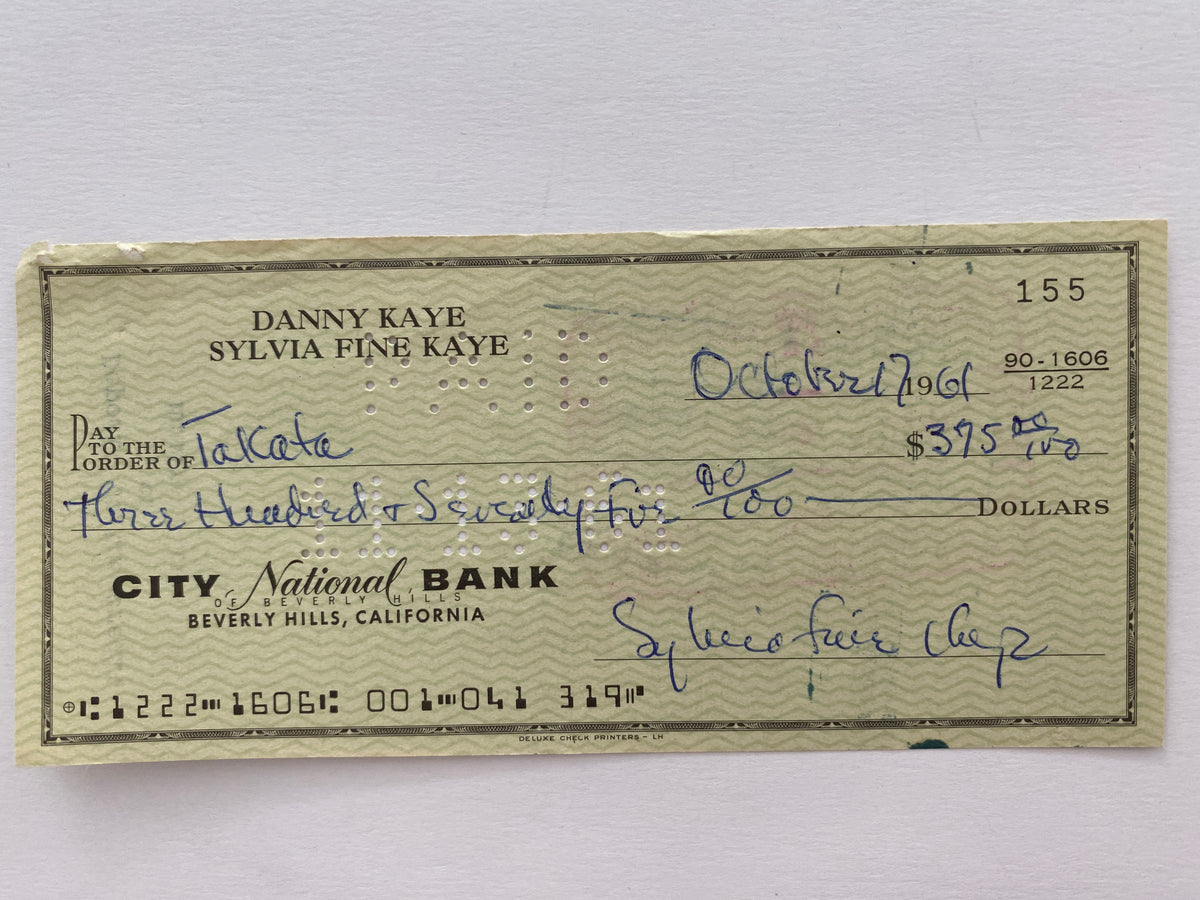 155
DANNY KAYE
SYLVIA FINE KAYE
PAID
October 17 1961
90-1606
1222
PAY TO THE ORDER OF Takata $375 00/100
Three Hundred & Seventy Five 00/100 DOLLARS
CITY National BANK
OF BEVERLY HILLS
BEVERLY HILLS, CALIFORNIA
Sylvia Fine Kaye
1222 1606 001 041 319
DELUXE CHECK PRINTERS - LH